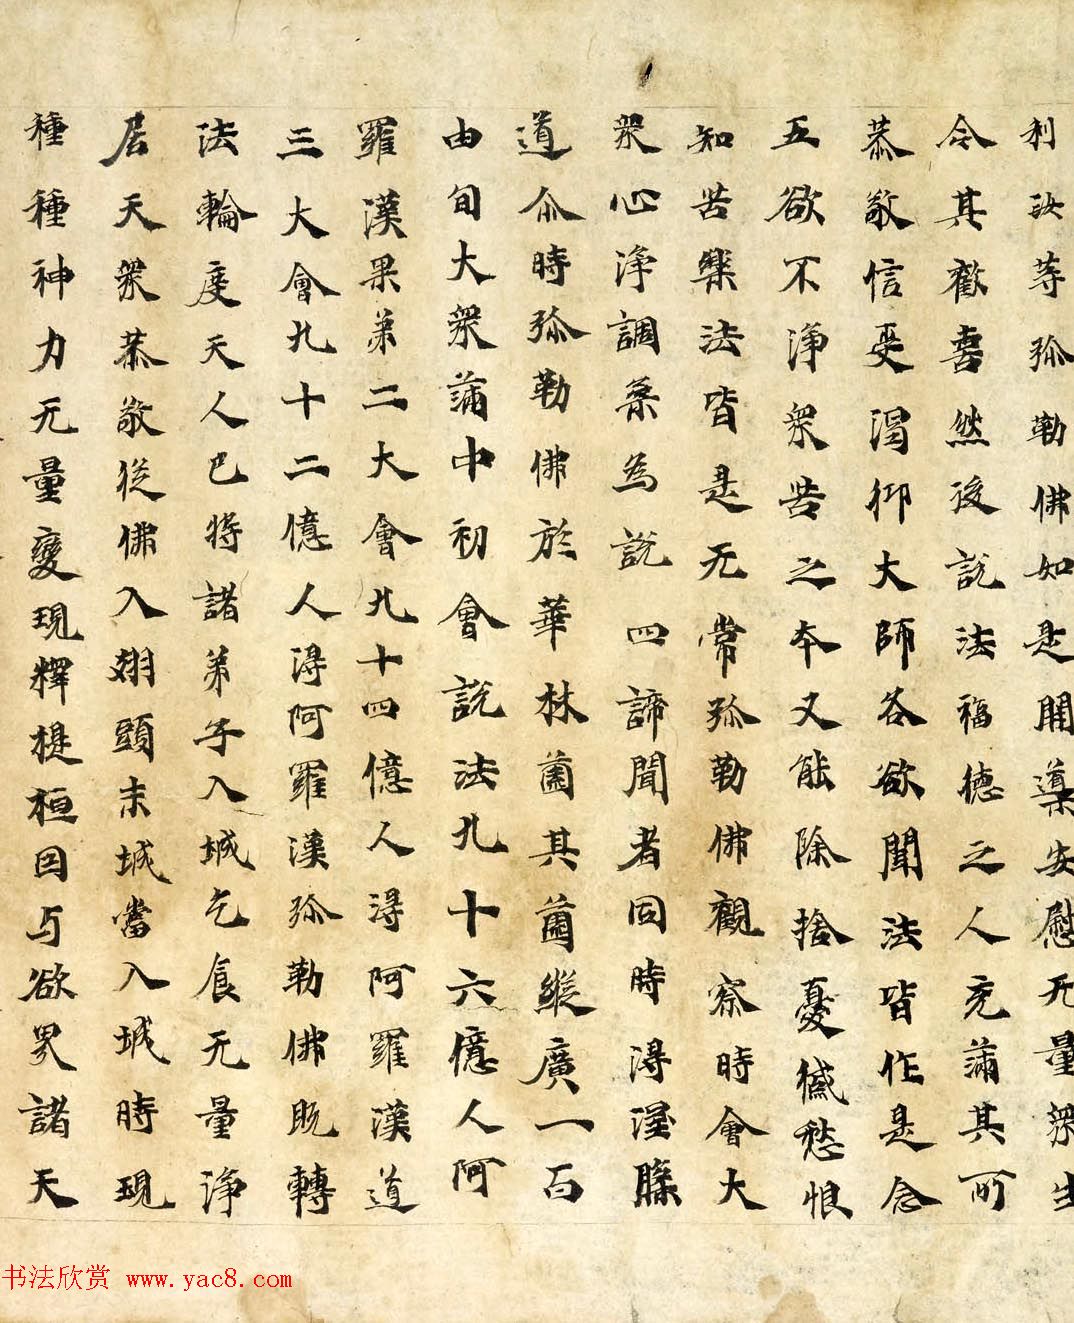 利汝等弥勒佛如是開導安慰无量衆生
令其歡喜然後説法福德之人充滿其所
恭敬信受渴仰大師各欲聞法皆作是念
五欲不淨衆苦之本又能除捨憂慼愁恨
知苦樂法皆是无常弥勒佛觀察時會大
衆心淨調柔為説四諦聞者同時得涅槃
道尒時弥勒佛於華林薗其薗縱廣一百
由旬大衆滿中初會説法九十六億人阿
羅漢果第二大會九十四億人得阿羅漢道
三大會九十二億人得阿羅漢弥勒佛既轉
法輪度天人已將諸弟子入城乞食无量淨
居天衆恭敬從佛入翅頭末城當入城時現
種種神力无量變現釋提桓因与欲界諸天
书法欣赏 www.yac8.com